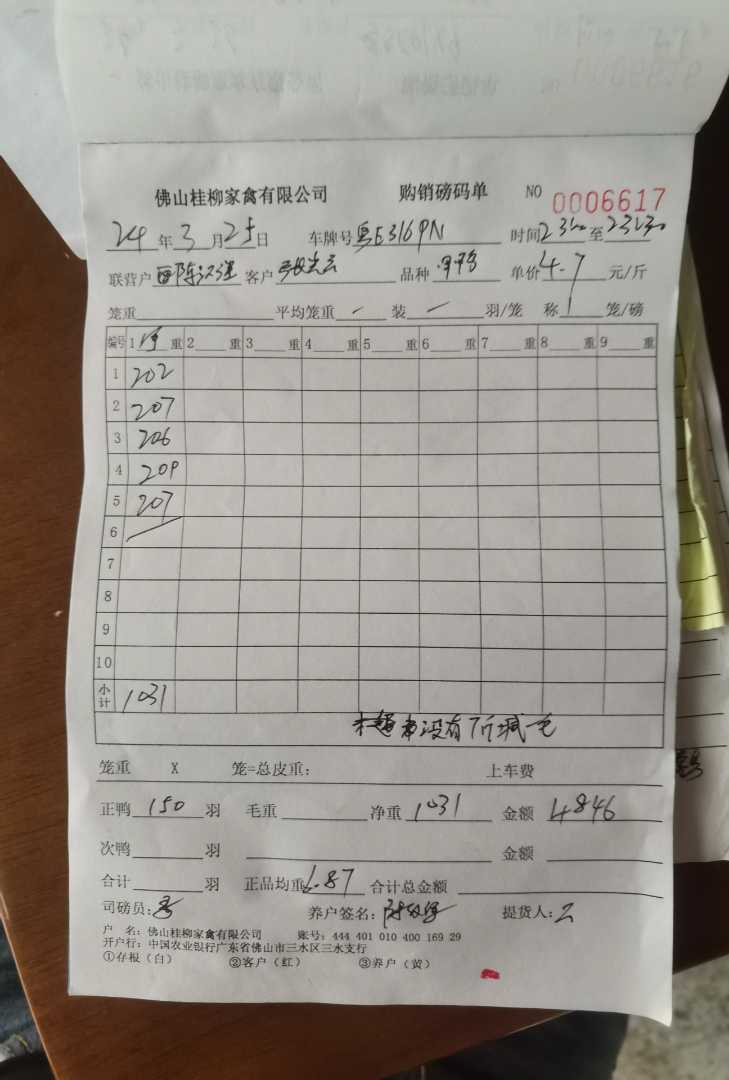 佛山桂柳家禽有限公司 购销磅码单 NO 0006617
24年3月25日 车牌号粤E316PN 时间 至
联营户 客户 品种 单价4.7元/斤
笼重 平均笼重 装 羽/笼 称1笼/磅
编号 1 重 2 重 3 重 4 重 5 重 6 重 7 重 8 重 9 重
1 202
2 207
3 206
4 209
5 207
6
7
8
9
10
小计 1031
没有7斤减一毛
笼重 X 笼=总皮重: 上车费
正鸭150羽 毛重 净重1031 金额4846
次鸭 羽 金额
合计 羽 正品均重6.87 合计总金额
司磅员: 养户签名: 提货人:
户 名: 佛山桂柳家禽有限公司 账号: 444 401 010 400 169 29
开户行: 中国农业银行广东省佛山市三水区三水支行
①存根(白) ②客户(红) ③养户(黄)